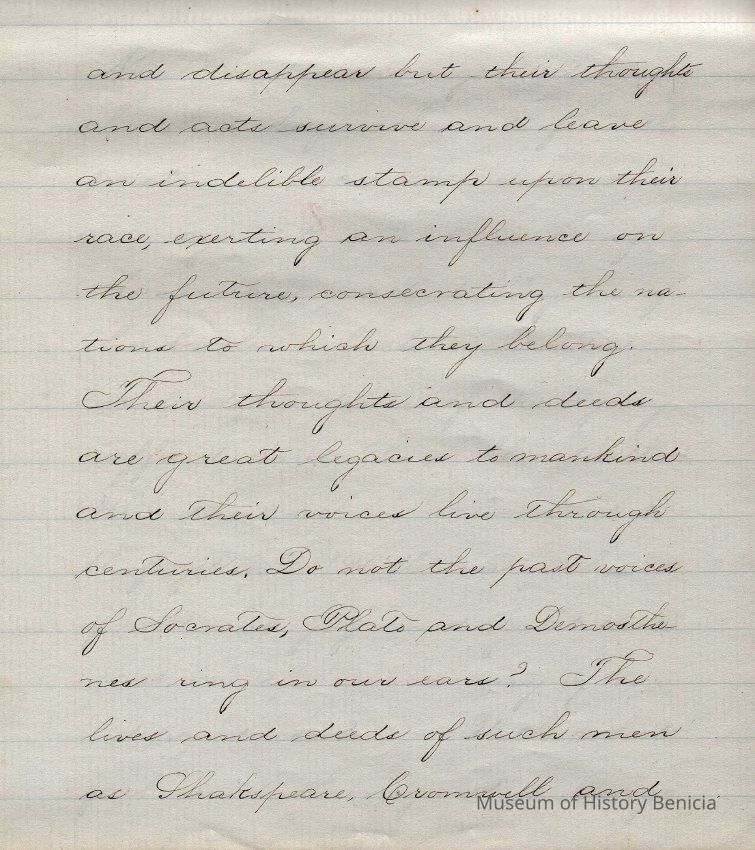 and disappear but their thoughts
and acts survive and leave
an indelible stamp upon their
race, exerting an influence on
the future, consecrating the na-
tions to which they belong.
Their thoughts and deeds
are great legacies to mankind
and their voices live through
centuries. Do not the past voices
of Socrates, Plato and Demosthe
nes ring in our ears? The
lives and deeds of such men
as Shakspeare, Cromwell and
Museum of History Benicia